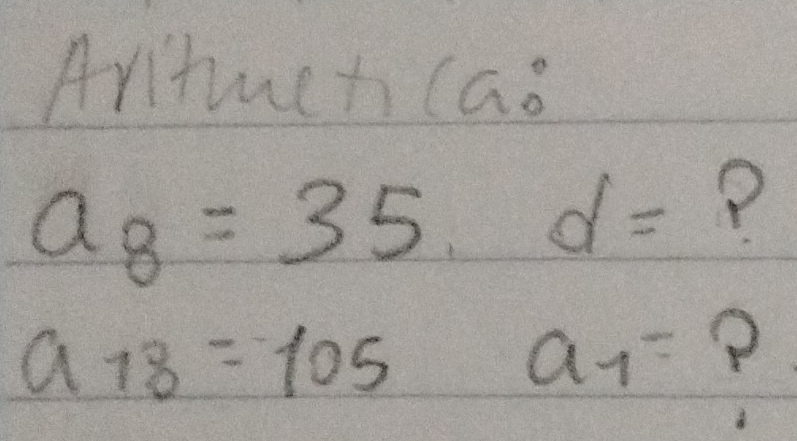 Aritmetica:
a₈ = 35. d = ?
a₁₈ = 105 a₁ = ?